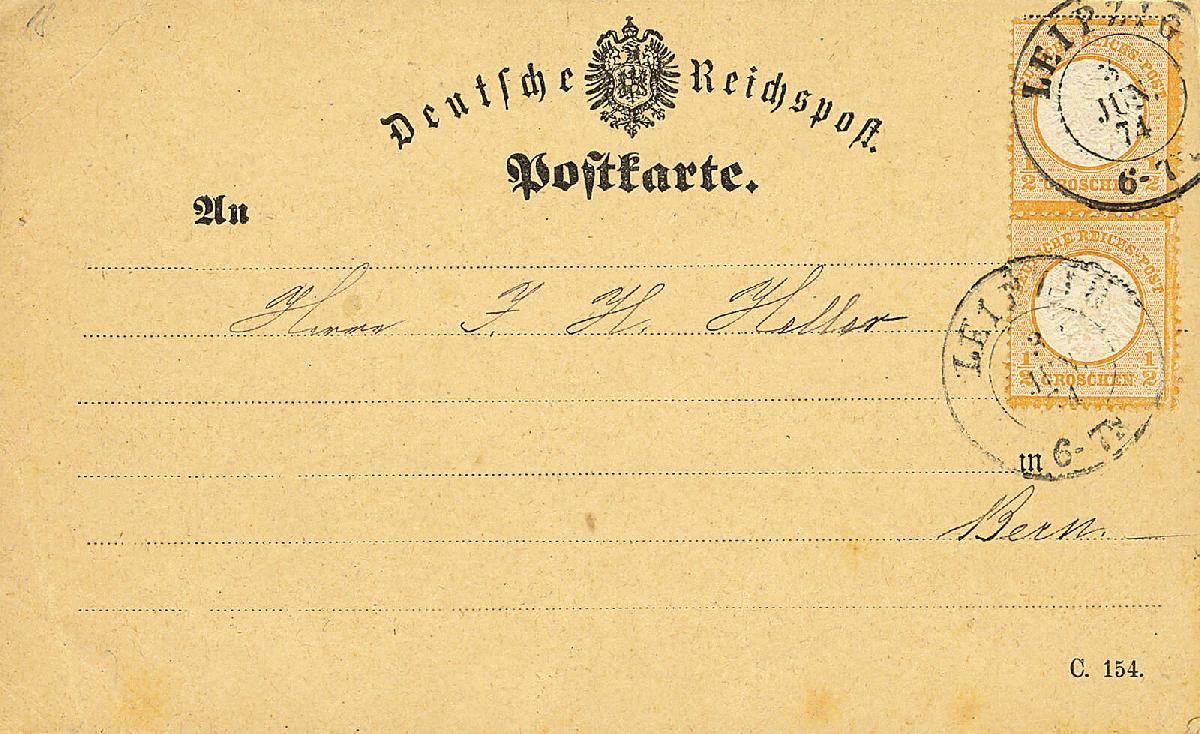 18
Deutsche Reichspost.
Postkarte.
An
LEIPZIG
JUN.
74
6-7N
DEUTSCHE REICHS-POST
1/2 GROSCHEN 1/2
Herrn F. H. Heller
DEUTSCHE REICHS-POST
1/2 GROSCHEN 1/2
3
74
6-7N
in
Bern.
C. 154.